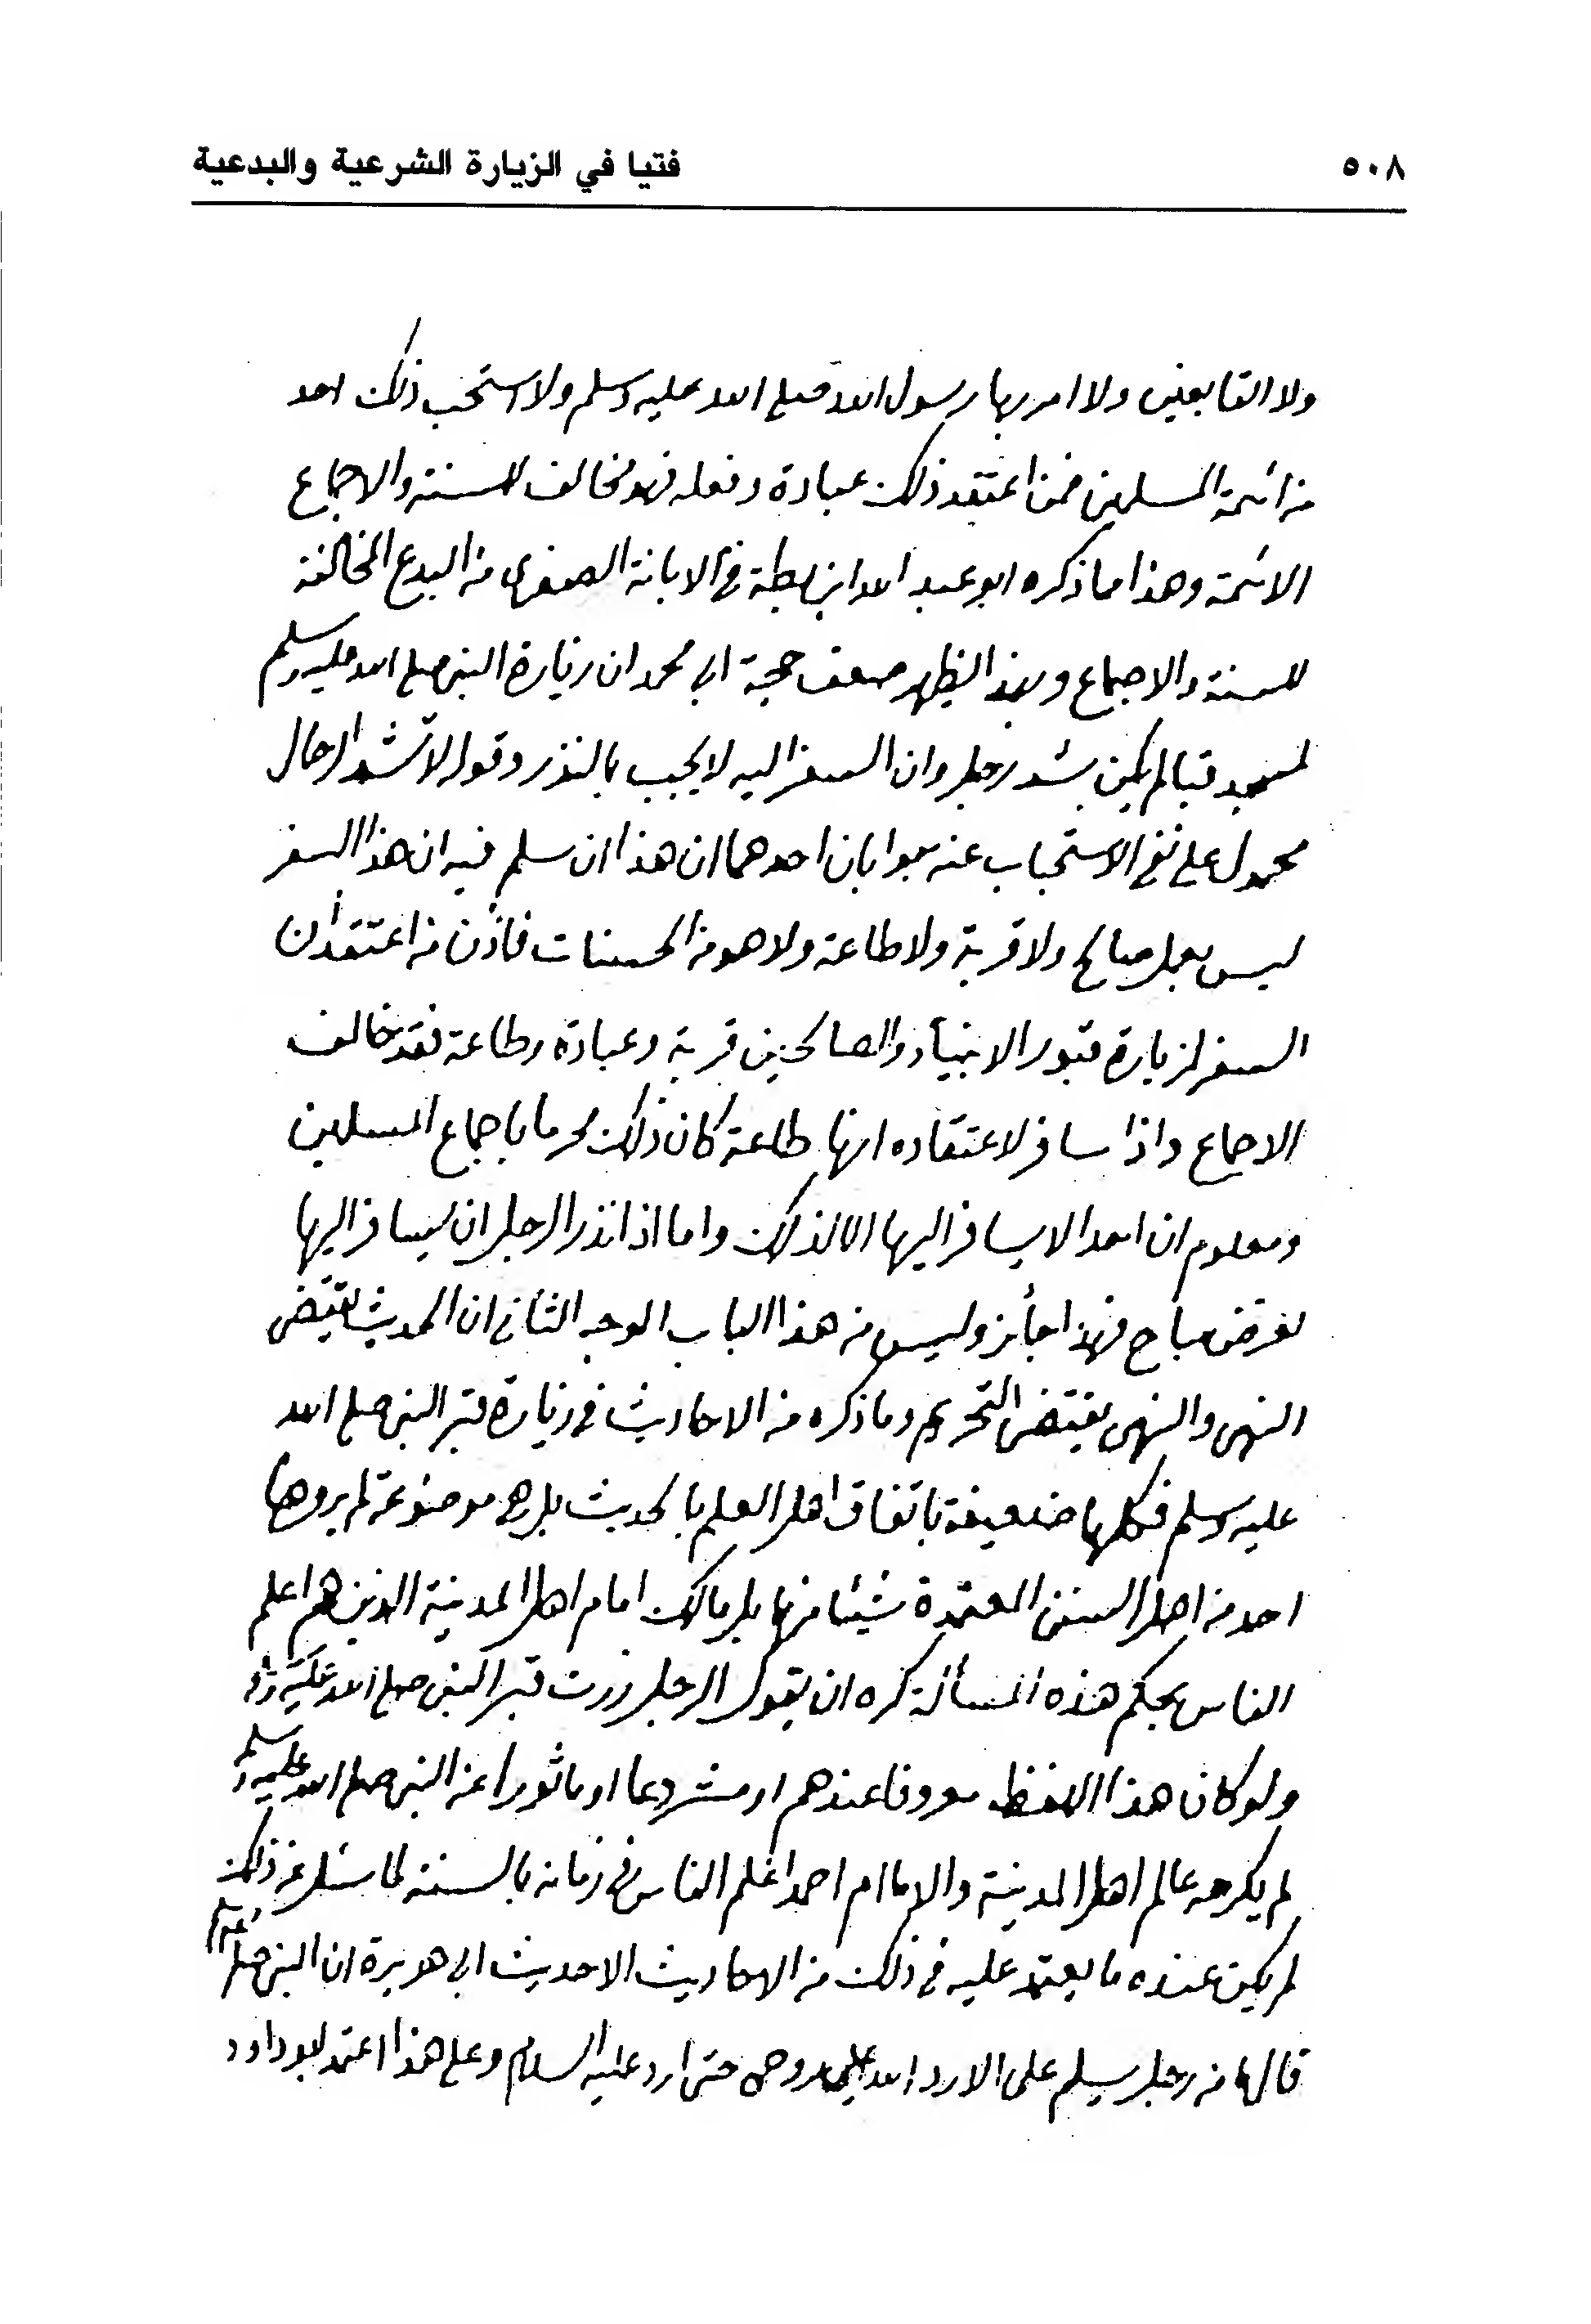 ٥٠٨
فتيا في الزيارة الشرعية والبدعية
ولا التابعين ولا امر بها رسول الله صلى الله عليه وسلم ولا استحب ذلك احد
من ائمة المسلمين فمن اعتقد ذلك عبادة وفعله فهو مخالف للسنة والاجماع
الائمة وهذا مما ذكره ابو عبد الله ابن بطة في الابانة الصغرى من البدع المخالفة
للسنة والاجماع وبهذا يظهر ضعف حجة ابي محمد ان زيارة النبي صلى الله عليه وسلم
لمسجد قبا لم يكن بشد رحل وان السفر اليه لا يجب بالنذر وقوله لا تشد الرحال
محمول على نفي الاستحباب عنه جوابان احدهما ان هذا ان سلم فيه ان هذا السفر
ليس بعمل صالح ولا قربة ولا طاعة ولا هو من الحسنات فاذن من اعتقد أن
السفر لزيارة قبور الانبيآء والصالحين قربة وعبادة وطاعة فقد خالف
الاجماع واذا سافر لاعتقاده انها طاعة كان ذلك محرما باجماع المسلمين
ومعلوم ان احدا لا يسافر اليها الا لذلك واما اذا نذر الرجل ان يسافر اليها
لغرض مباح فهذا جائز وليس من هذا الباب الوجه الثاني ان الحديث يقتضي
النهي والنهي يقتضي التحريم وما ذكره من الاحاديث في زيارة قبر النبي صلى الله
عليه وسلم فكلها ضعيفة باتفاق اهل العلم بالحديث بل هي موضوعة لم يروها
احد من اهل السنن المعتمدة شيئا منها بل مالك امام اهل المدينة الذين هم اعلم
الناس بحكم هذه المسألة كره ان يقول الرجل زرت قبر النبي صلى الله عليه
ولو كان هذا اللفظ معروفا عندهم او مشروعا او ماثورا عن النبي صلى الله عليه وسلم
لم يكرهه عالم اهل المدينة والامام احمد اعلم الناس في زمانه بالسنة لما سئل عن ذلك
لم يكن عنده ما يعتمد عليه في ذلك من الاحاديث الا حديث ابي هريرة ان النبي صلى
قال ما من رجل يسلم علي الا رد الله علي روحي حتى ارد عليه السلام وعلى هذا اعتمد ابو داود